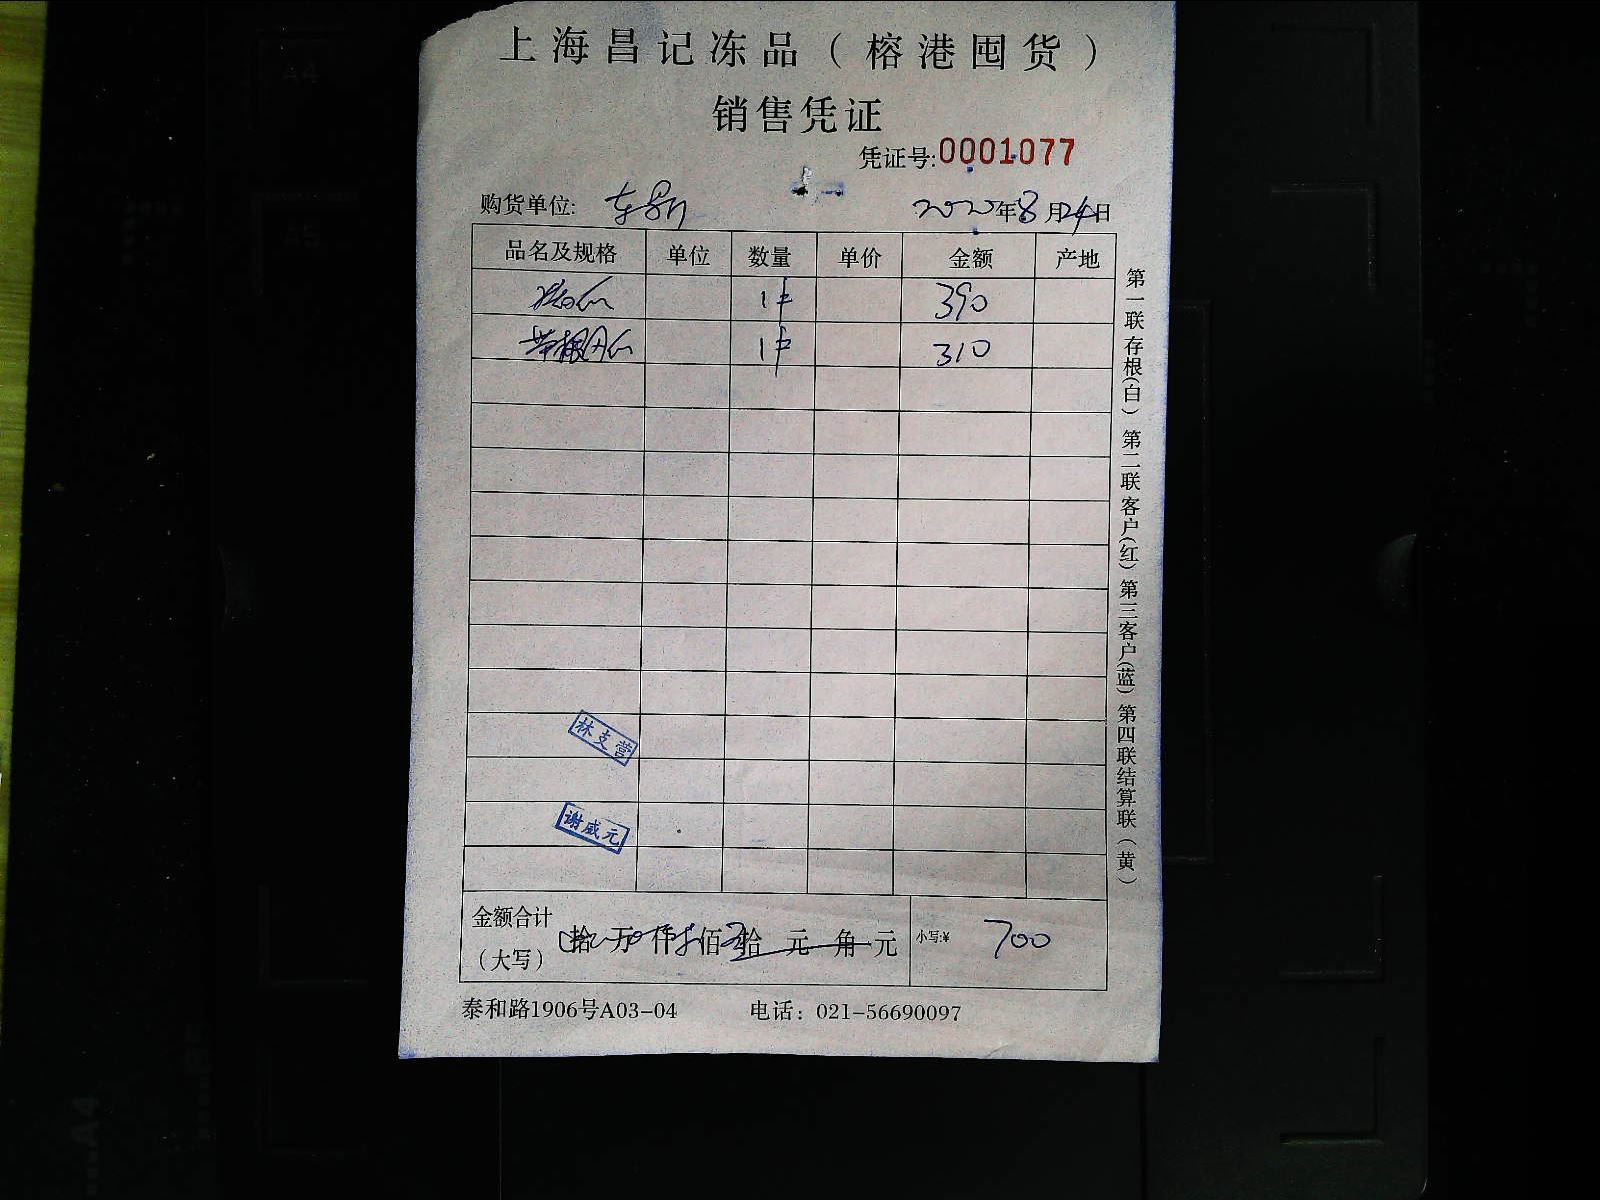 上海昌记冻品（榕港囤货）
销售凭证
凭证号:0001077
购货单位:
2020年8月24日
品名及规格 单位 数量 单价 金额 产地
1件 390
1件 310
林支营
谢威元
金额合计（大写） 拾 万 仟 佰 拾 元 角 元 小写:¥ 700
泰和路1906号A03-04 电话：021-56690097
第一联存根（白）第二联客户（红）第三客户（蓝）第四联结算联（黄）